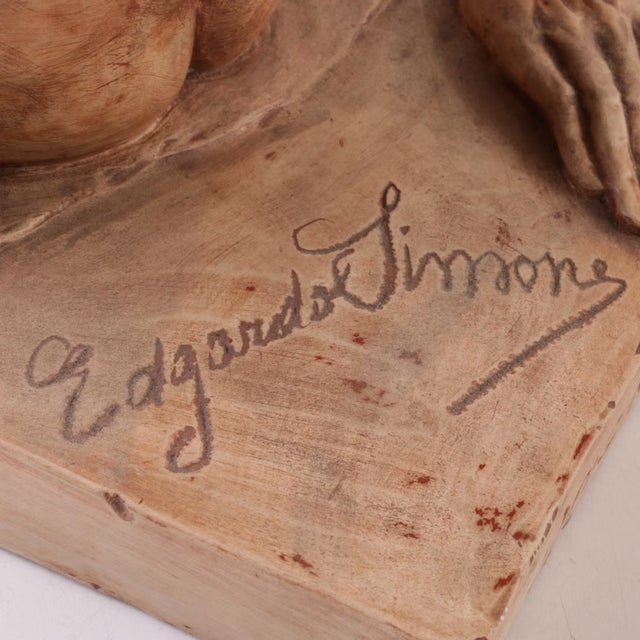 Edgardo Simone